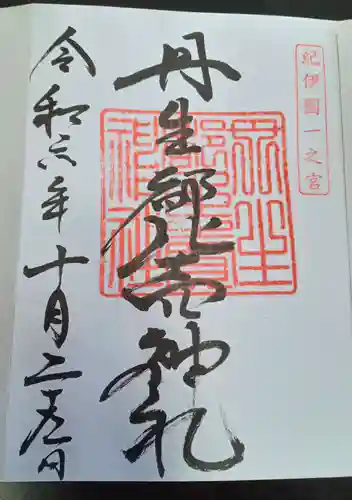 紀伊國一之宮
丹生都比売神社
丹生都比賣神社
令和六年十月二十五日